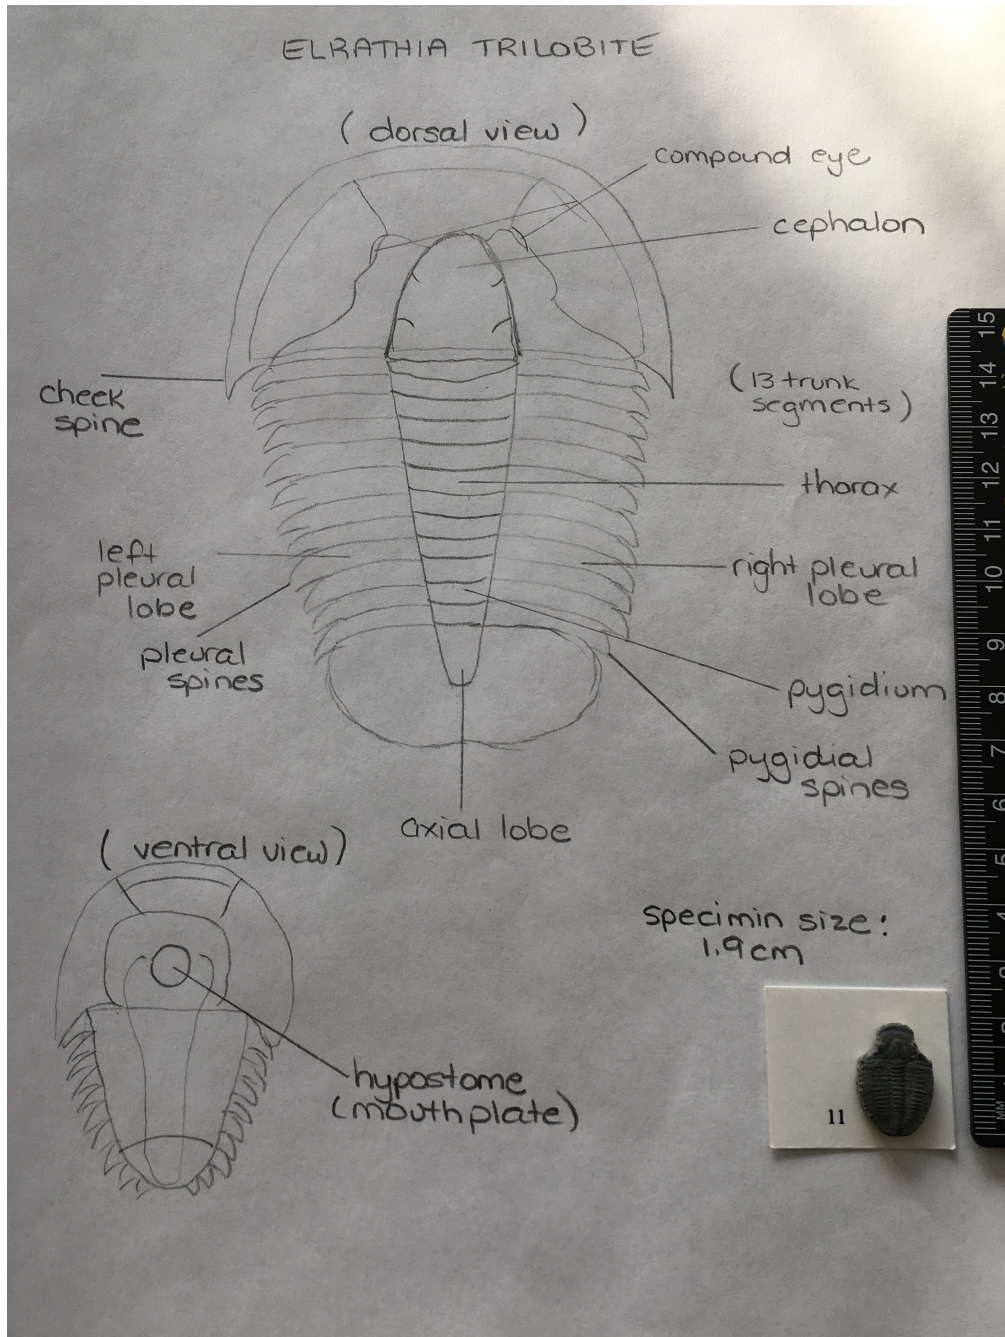 ELRATHIA TRILOBITE
(dorsal view)
compound eye
cephalon
cheek
spine
(13 trunk
segments)
thorax
left
pleural
lobe
right pleural
lobe
pleural
spines
pygidium
pygidial
spines
axial lobe
(ventral view)
specimin size:
1.9cm
hypostome
(mouthplate)
11
15
14
13
12
11
10
9
8
7
6
5
MM